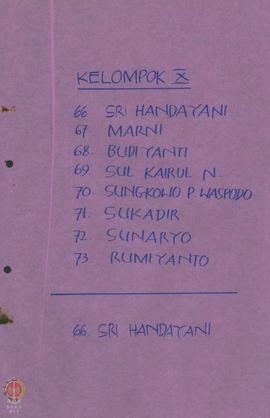 KELOMPOK X
66 SRI HANDAYANI
67 MARNI
68. BUDIYANTI
69. SUL KAIRUL N.
70. SUNGKOWO P. WASPODO
71. SUKADIR
72. SUNARYO
73. RUMIYANTO
66. SRI HANDAYANI